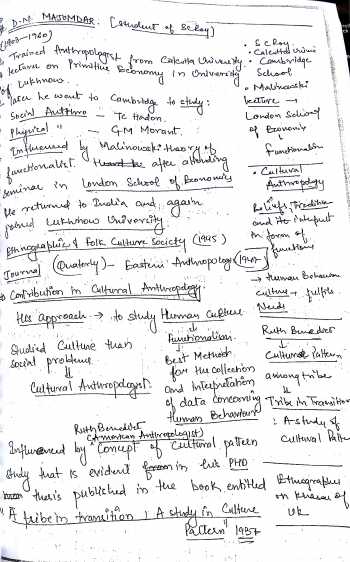 D.N. MAJUMDAR: [Student of SC Roy]
(1903-1960)
Trained Anthropologist from Calcutta University.
lecture on Primitive Economy in University
of Lukhnow.
Later he went to Cambridge to study:
Social Anthro - Tc Hadon.
Physical " - GM Morant.
Influenced by Malinowski theory of
functionalist after attending
seminar in London School of Economics
He returned to India and again
joined Lukhnow University
Ethnographic & Folk Culture Society (1945)
Journal (Quaterly) - Eastern Anthropology (1947)
Contribution in Cultural Anthropology
His approach → to study Human Culture
Studied Culture than
social problems
⇓
Cultural Anthropologist.
↓
Functionalism
Best Method
for the collection
and Interpretation
of data concerning
Human Behaviour
Ruth Benedict
(American Anthropologist)
Influenced by Concept of Cultural pattern
study that is evident in his PHD
thesis published in the book entitled
"A tribe in transition: A study in Culture
Pattern" 1937
• SC Roy
• Calcutta Univ
• Cambridge
School
• Malinowski
lecture →
London School
of Economic
↓
Functionalism
• Cultural
Anthropology
Beliefs, Tradition
and interpret
in form of
functions
→ Human Behaviour
culture → fulfils
Needs
Ruth Benedict
↓
Cultural Pattern
among tribe
⇓
Tribe in Transition
: A study of
Cultural Patte
Ethnographer
on Khasas of
UK